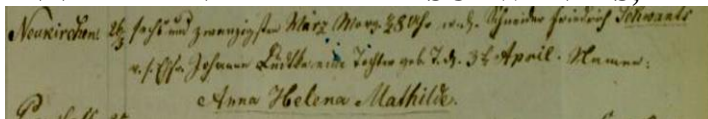 Neukirchen 26/3 sechs und zwanzigsten März Morg. 8 Uhr w. d. Schneider Friedrich Schwantz
v. s. Ehfr. Johanne Lüdtke eine Tochter geb. T. d. 3t April. Namen:
Anna Helena Mathilde.